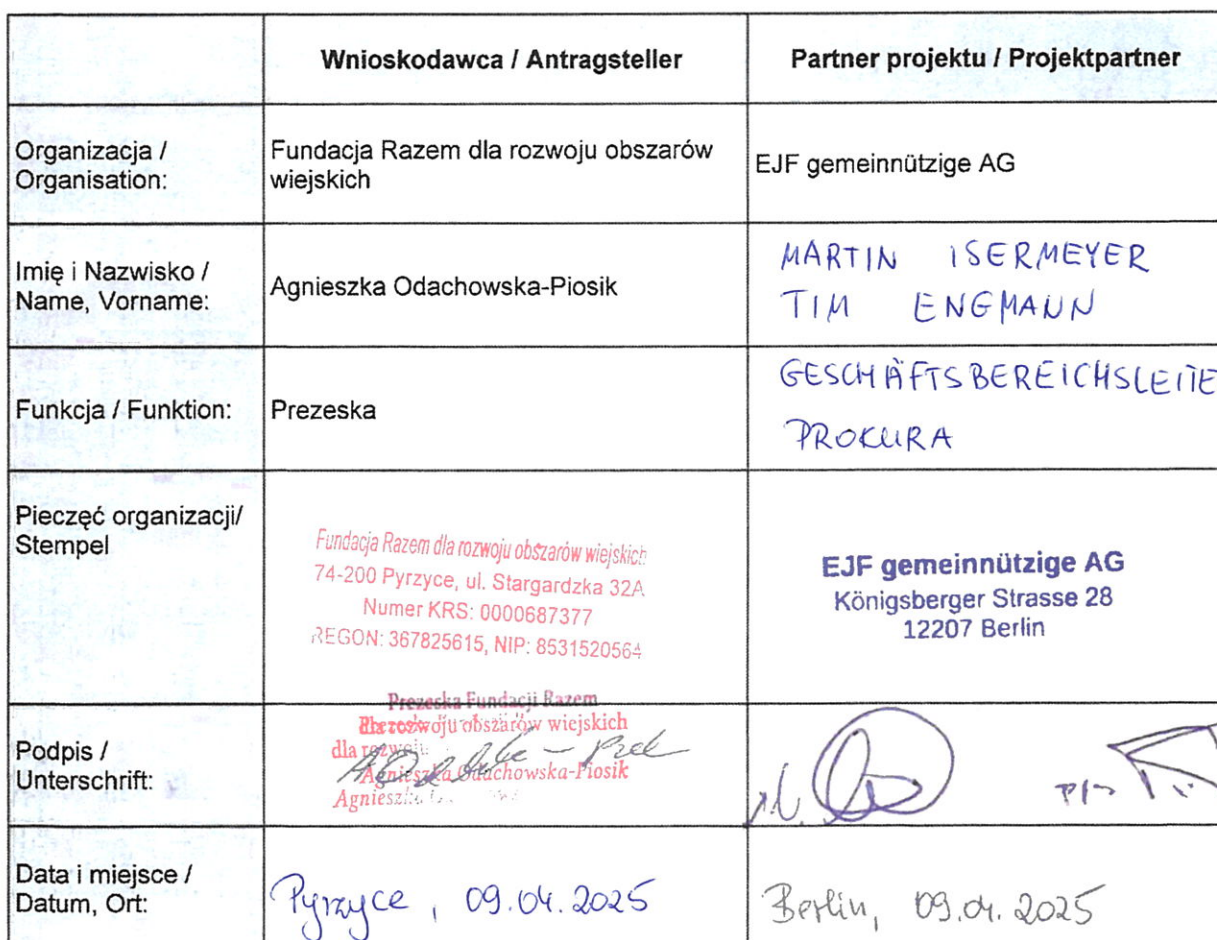 Wnioskodawca / Antragsteller
Partner projektu / Projektpartner
Organizacja /
Organisation:
Fundacja Razem dla rozwoju obszarów
wiejskich
EJF gemeinnützige AG
Imię i Nazwisko /
Name, Vorname:
Agnieszka Odachowska-Piosik
MARTIN ISERMEYER
TIM ENGMANN
Funkcja / Funktion:
Prezeska
GESCHÄFTSBEREICHSLEITE
PROKURA
Pieczęć organizacji/
Stempel
Fundacja Razem dla rozwoju obszarów wiejskich
74-200 Pyrzyce, ul. Stargardzka 32A
Numer KRS: 0000687377
REGON: 367825615, NIP: 8531520564
EJF gemeinnützige AG
Königsberger Strasse 28
12207 Berlin
Podpis /
Unterschrift:
Prezeska Fundacji Razem
dla rozwoju obszarów wiejskich
dla
Agnieszka Odachowska-Piosik
Agnieszka
Data i miejsce /
Datum, Ort:
Pyrzyce, 09.04.2025
Berlin, 09.04.2025